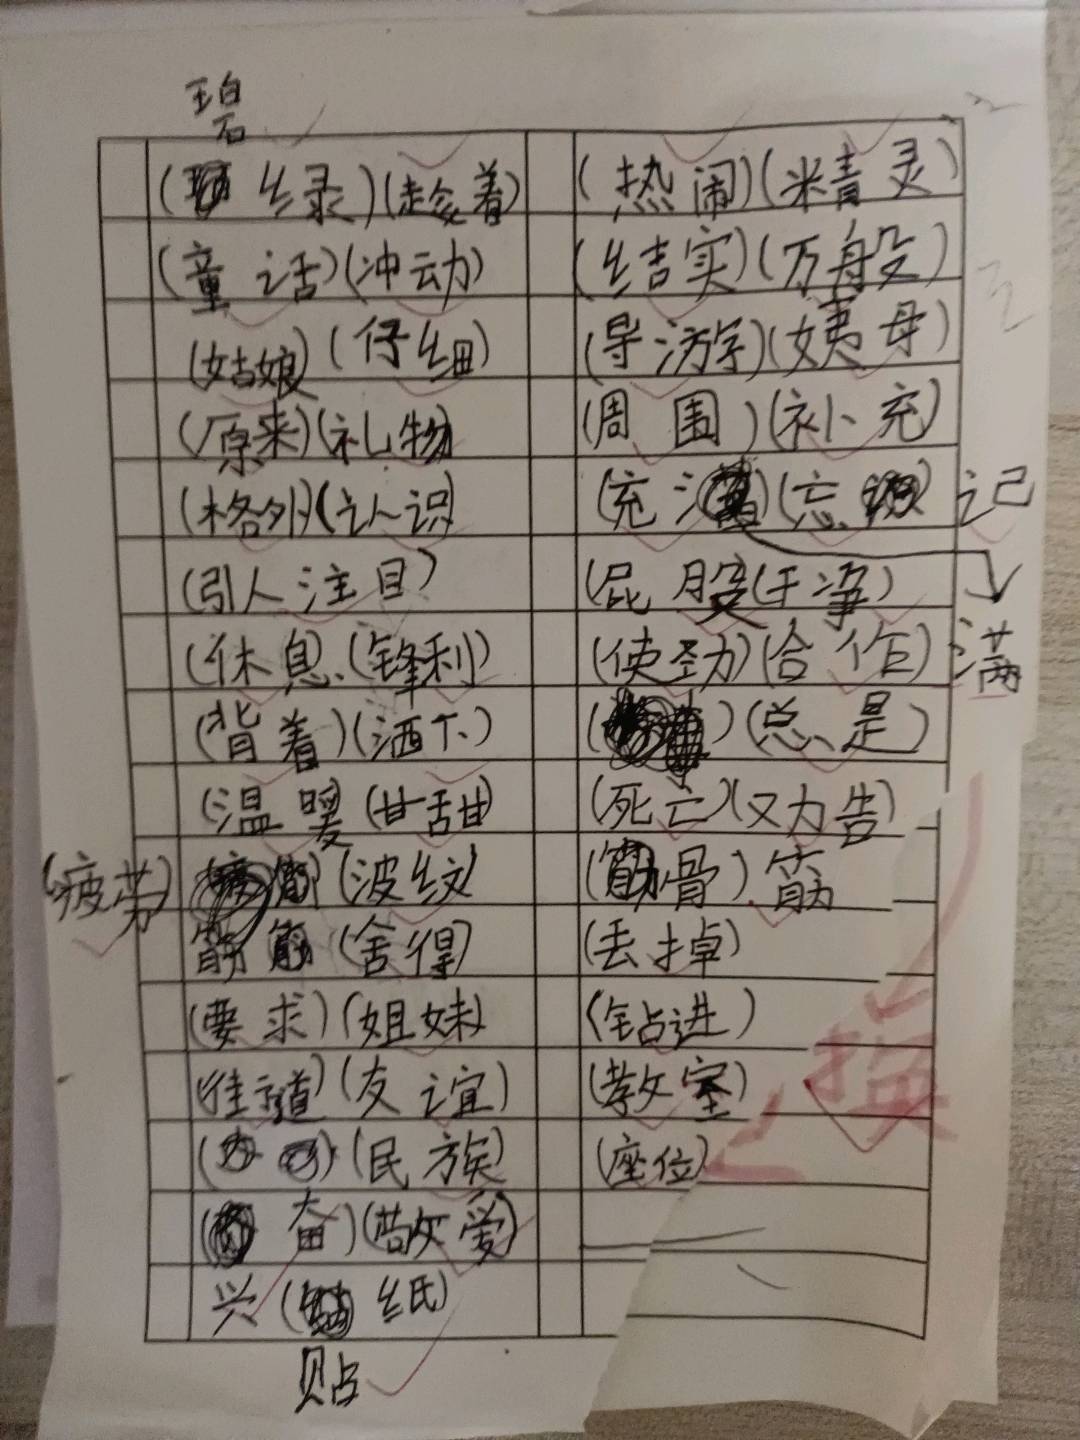 碧
(绿)(趁着)
(童话)(冲动)
(姑娘)(仔细)
(原来)(礼物)
(格外)(认识)
(引人注目)
(休息)(锋利)
(背着)(洒下)
(温暖)(甘甜)
(疲劳)(波纹)
(舍得)
(要求)(姐妹)
(友谊)
()(民族)
(奋)(敬爱)
兴(纸)
贴
(热闹)(精灵)
(结实)(万般)
(导游)(姨母)
(周围)(补充)
(充)(忘)记
(屁股)(干净)
(使劲)(合作)满
()(总是)
(死亡)(又力告)
(骨)筋
(丢掉)
(钻进)
(教室)
(座位)